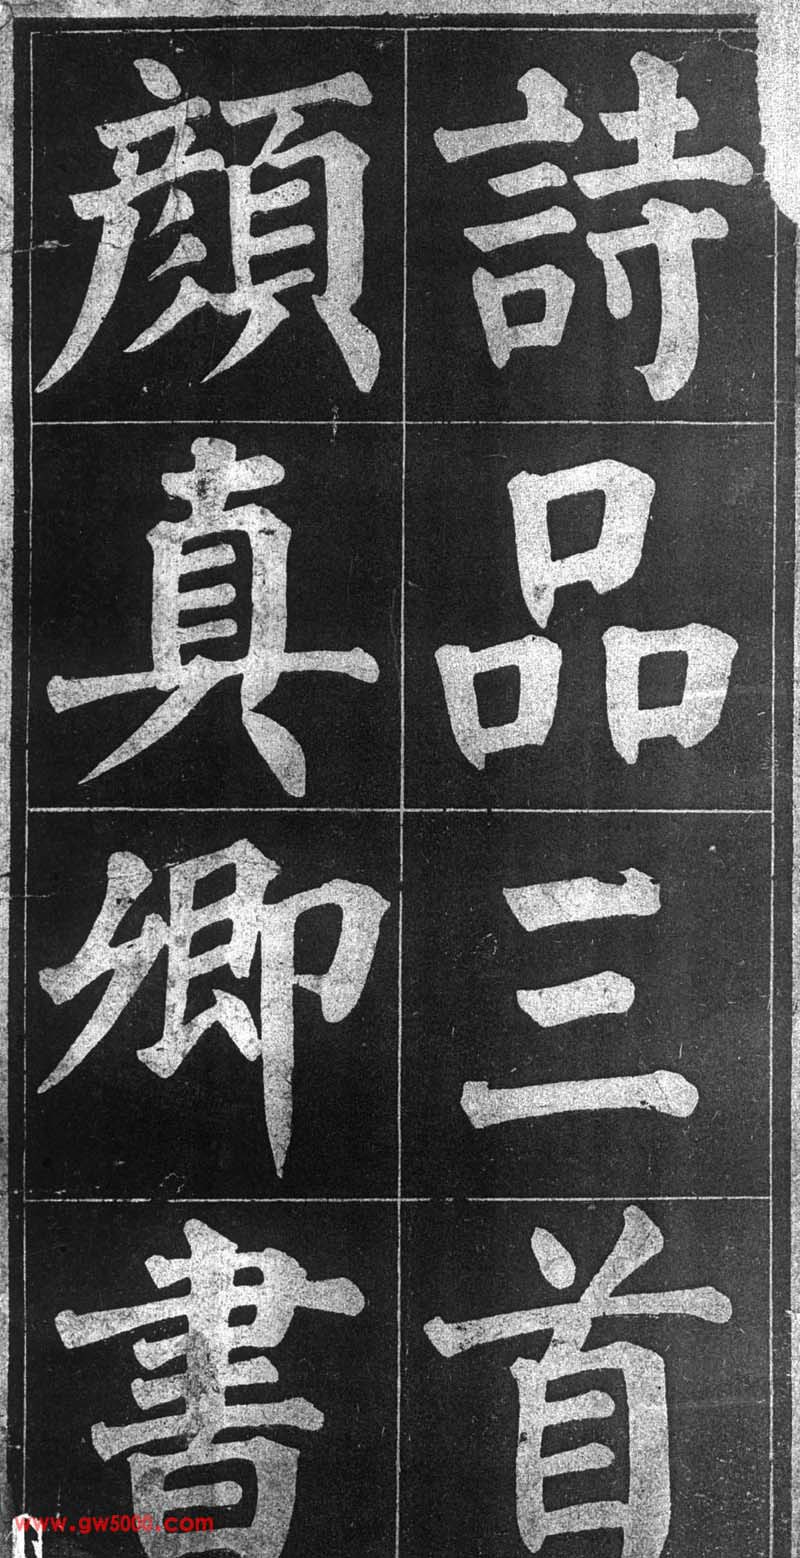 詩品三首
顏真卿書
www.gw5000.com